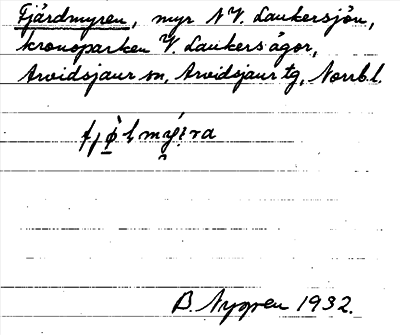 Fjärdmyren, myr N V. Laukersjön,
kronoparken V. Laukersågor,
Arvidsjaur sn, Arvidsjaur tg, Norrb. l.
B. Nygren 1932.